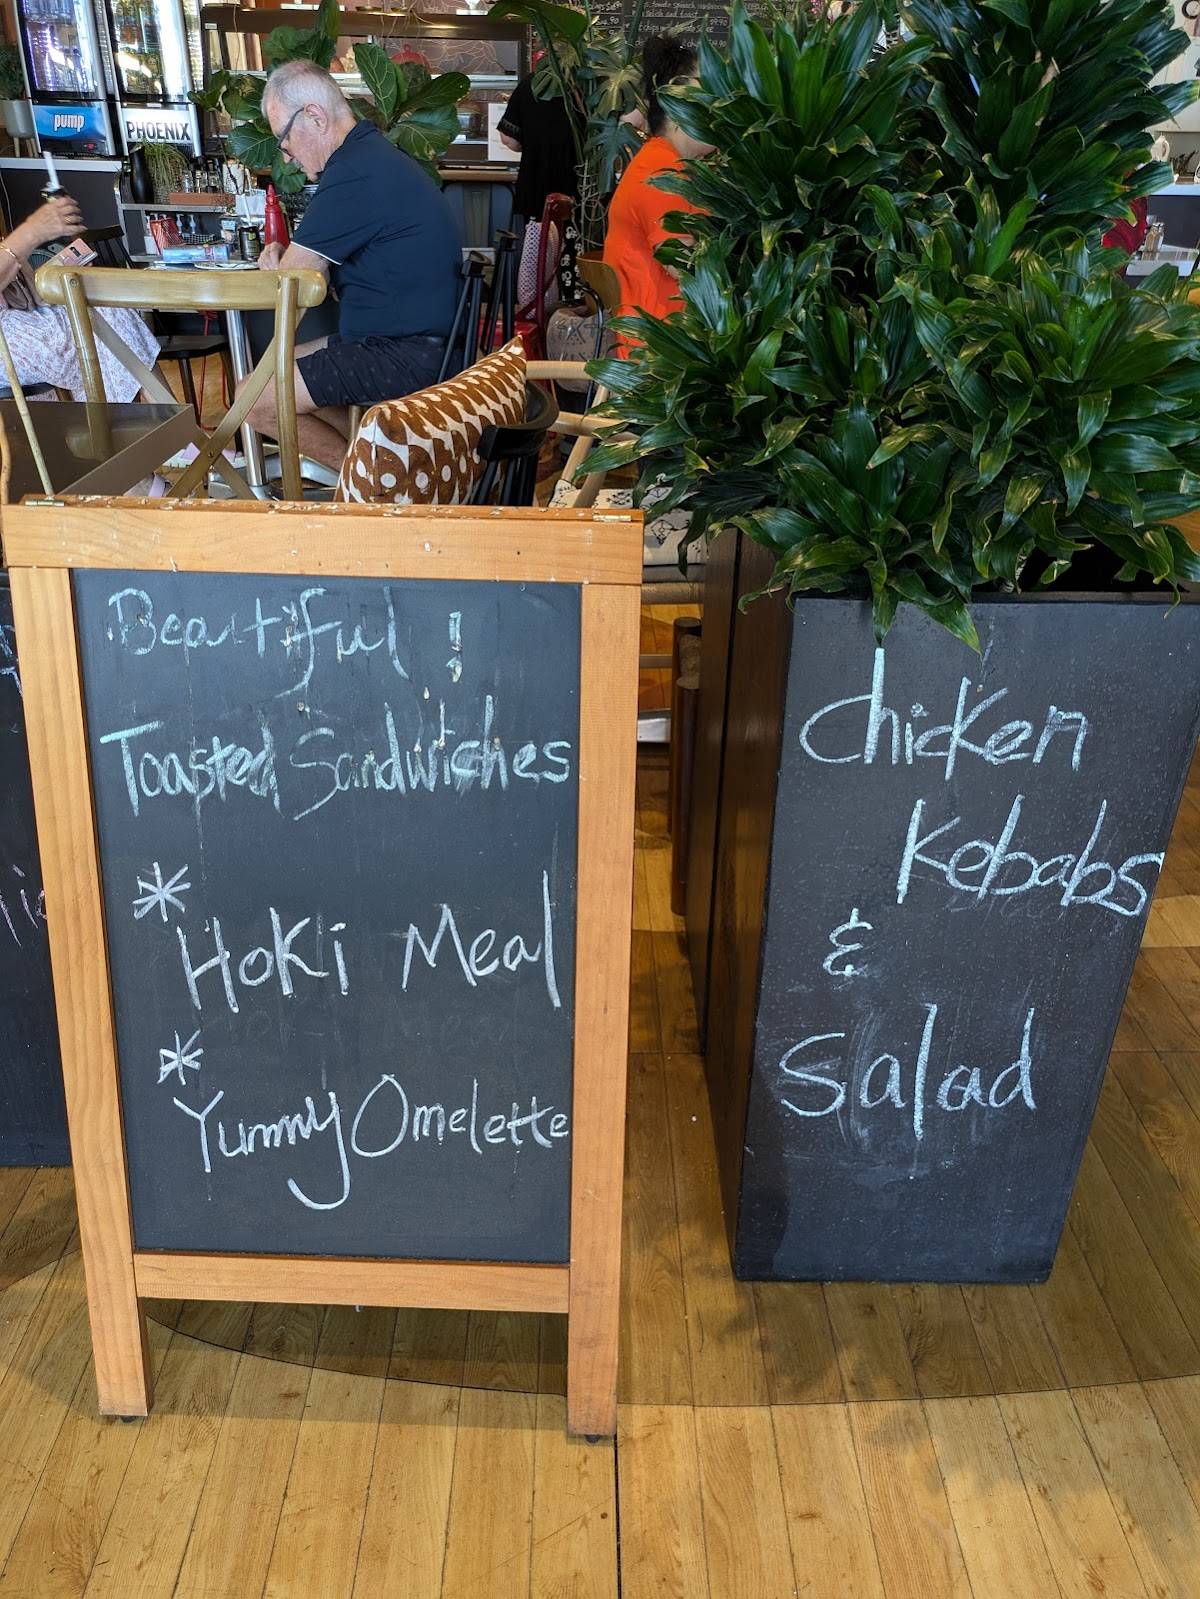 pump
PHOENIX
Beautiful !
Toasted Sandwiches
* Hoki Meal
* Yummy Omelette
Chicken
Kebabs
&
Salad